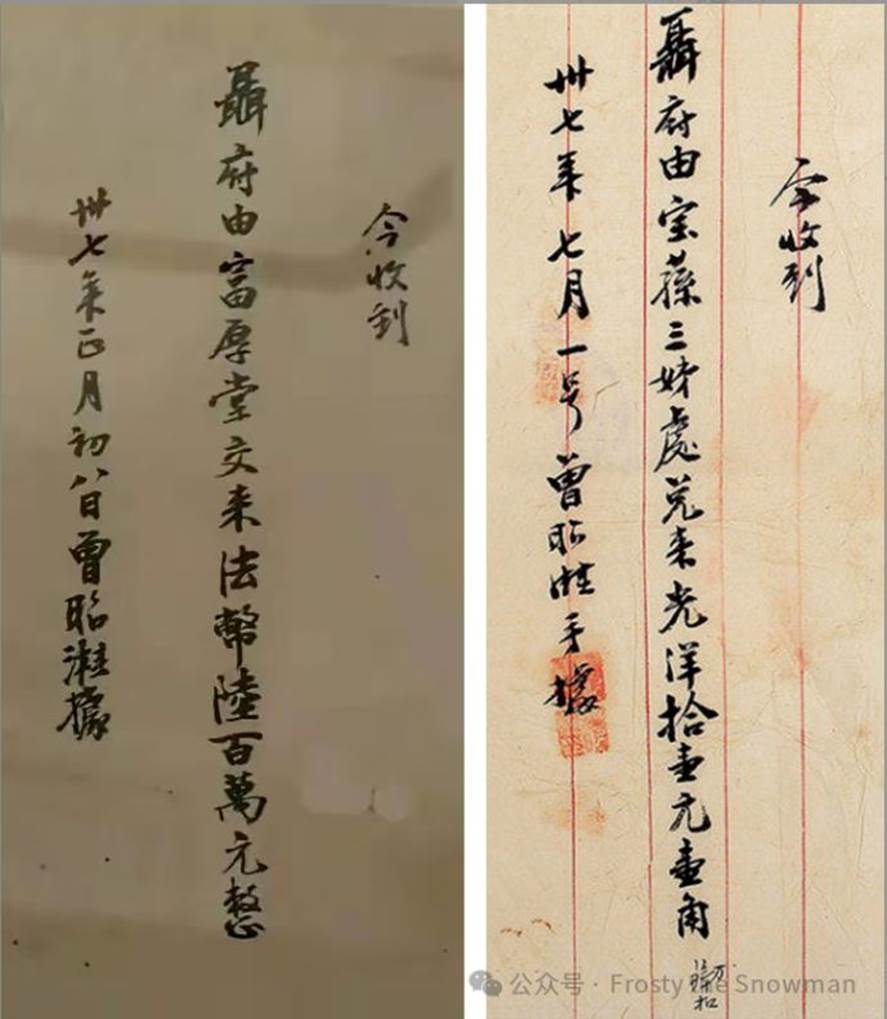 今收到
聶府由富厚堂交来法幣陸百萬元整
卅七年正月初八日曾昭潍據
今收到
聶府由宝蓀三姊處兑来光洋拾壹元壹角
卅七年七月一号曾昭潍手據
公众号 · Frosty the Snowman